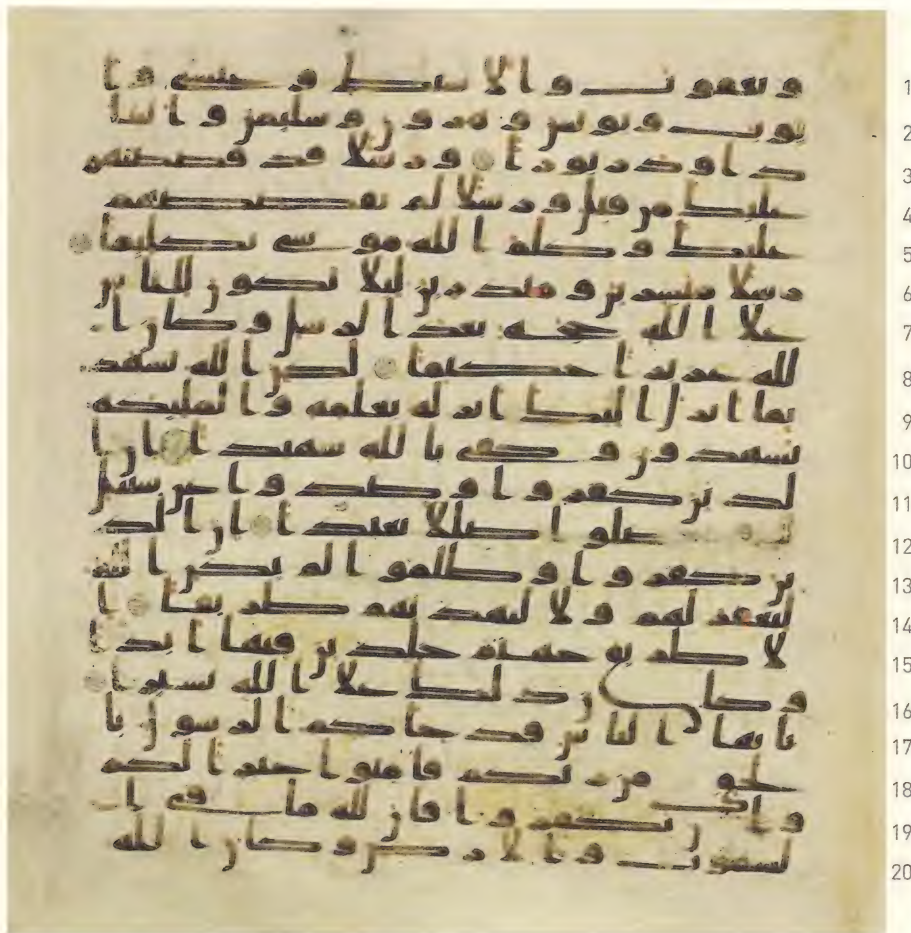 ويعقوب والاسبط وعيسى وا 1
يوب ويونس وهرون وسليمن واتينا 2
داود زبورا ورسلا قد قصصنهم 3
عليك من قبل ورسلا لم نقصصهم 4
عليك وكلم الله موسى تكليما 5
رسلا مبشرين ومنذرين ليلا يكون للناس 6
علا الله حجة بعد الرسل وكان ا 7
لله عزيزا حكيما لكن الله يشهد 8
بما انزل اليك انزله بعلمه والمليكة 9
يشهدون وكفى بالله شهيدا ان ا 10
لذين كفروا وصدوا عن سبيل 11
الله قد ضلوا ضللا بعيدا ان الذ 12
ين كفروا وظلموا لم يكن الله 13
ليغفر لهم ولا ليهديهم طريقا ا 14
لا طريق جهنم خلدين فيها ابدا 15
وكان ذلك علا الله يسيرا 16
يايها الناس قد جاكم الرسول با 17
لحق من ربكم فامنوا خيرا لكم 18
وان تكفروا فان لله ما في ا 19
لسموت والارض وكان الله 20